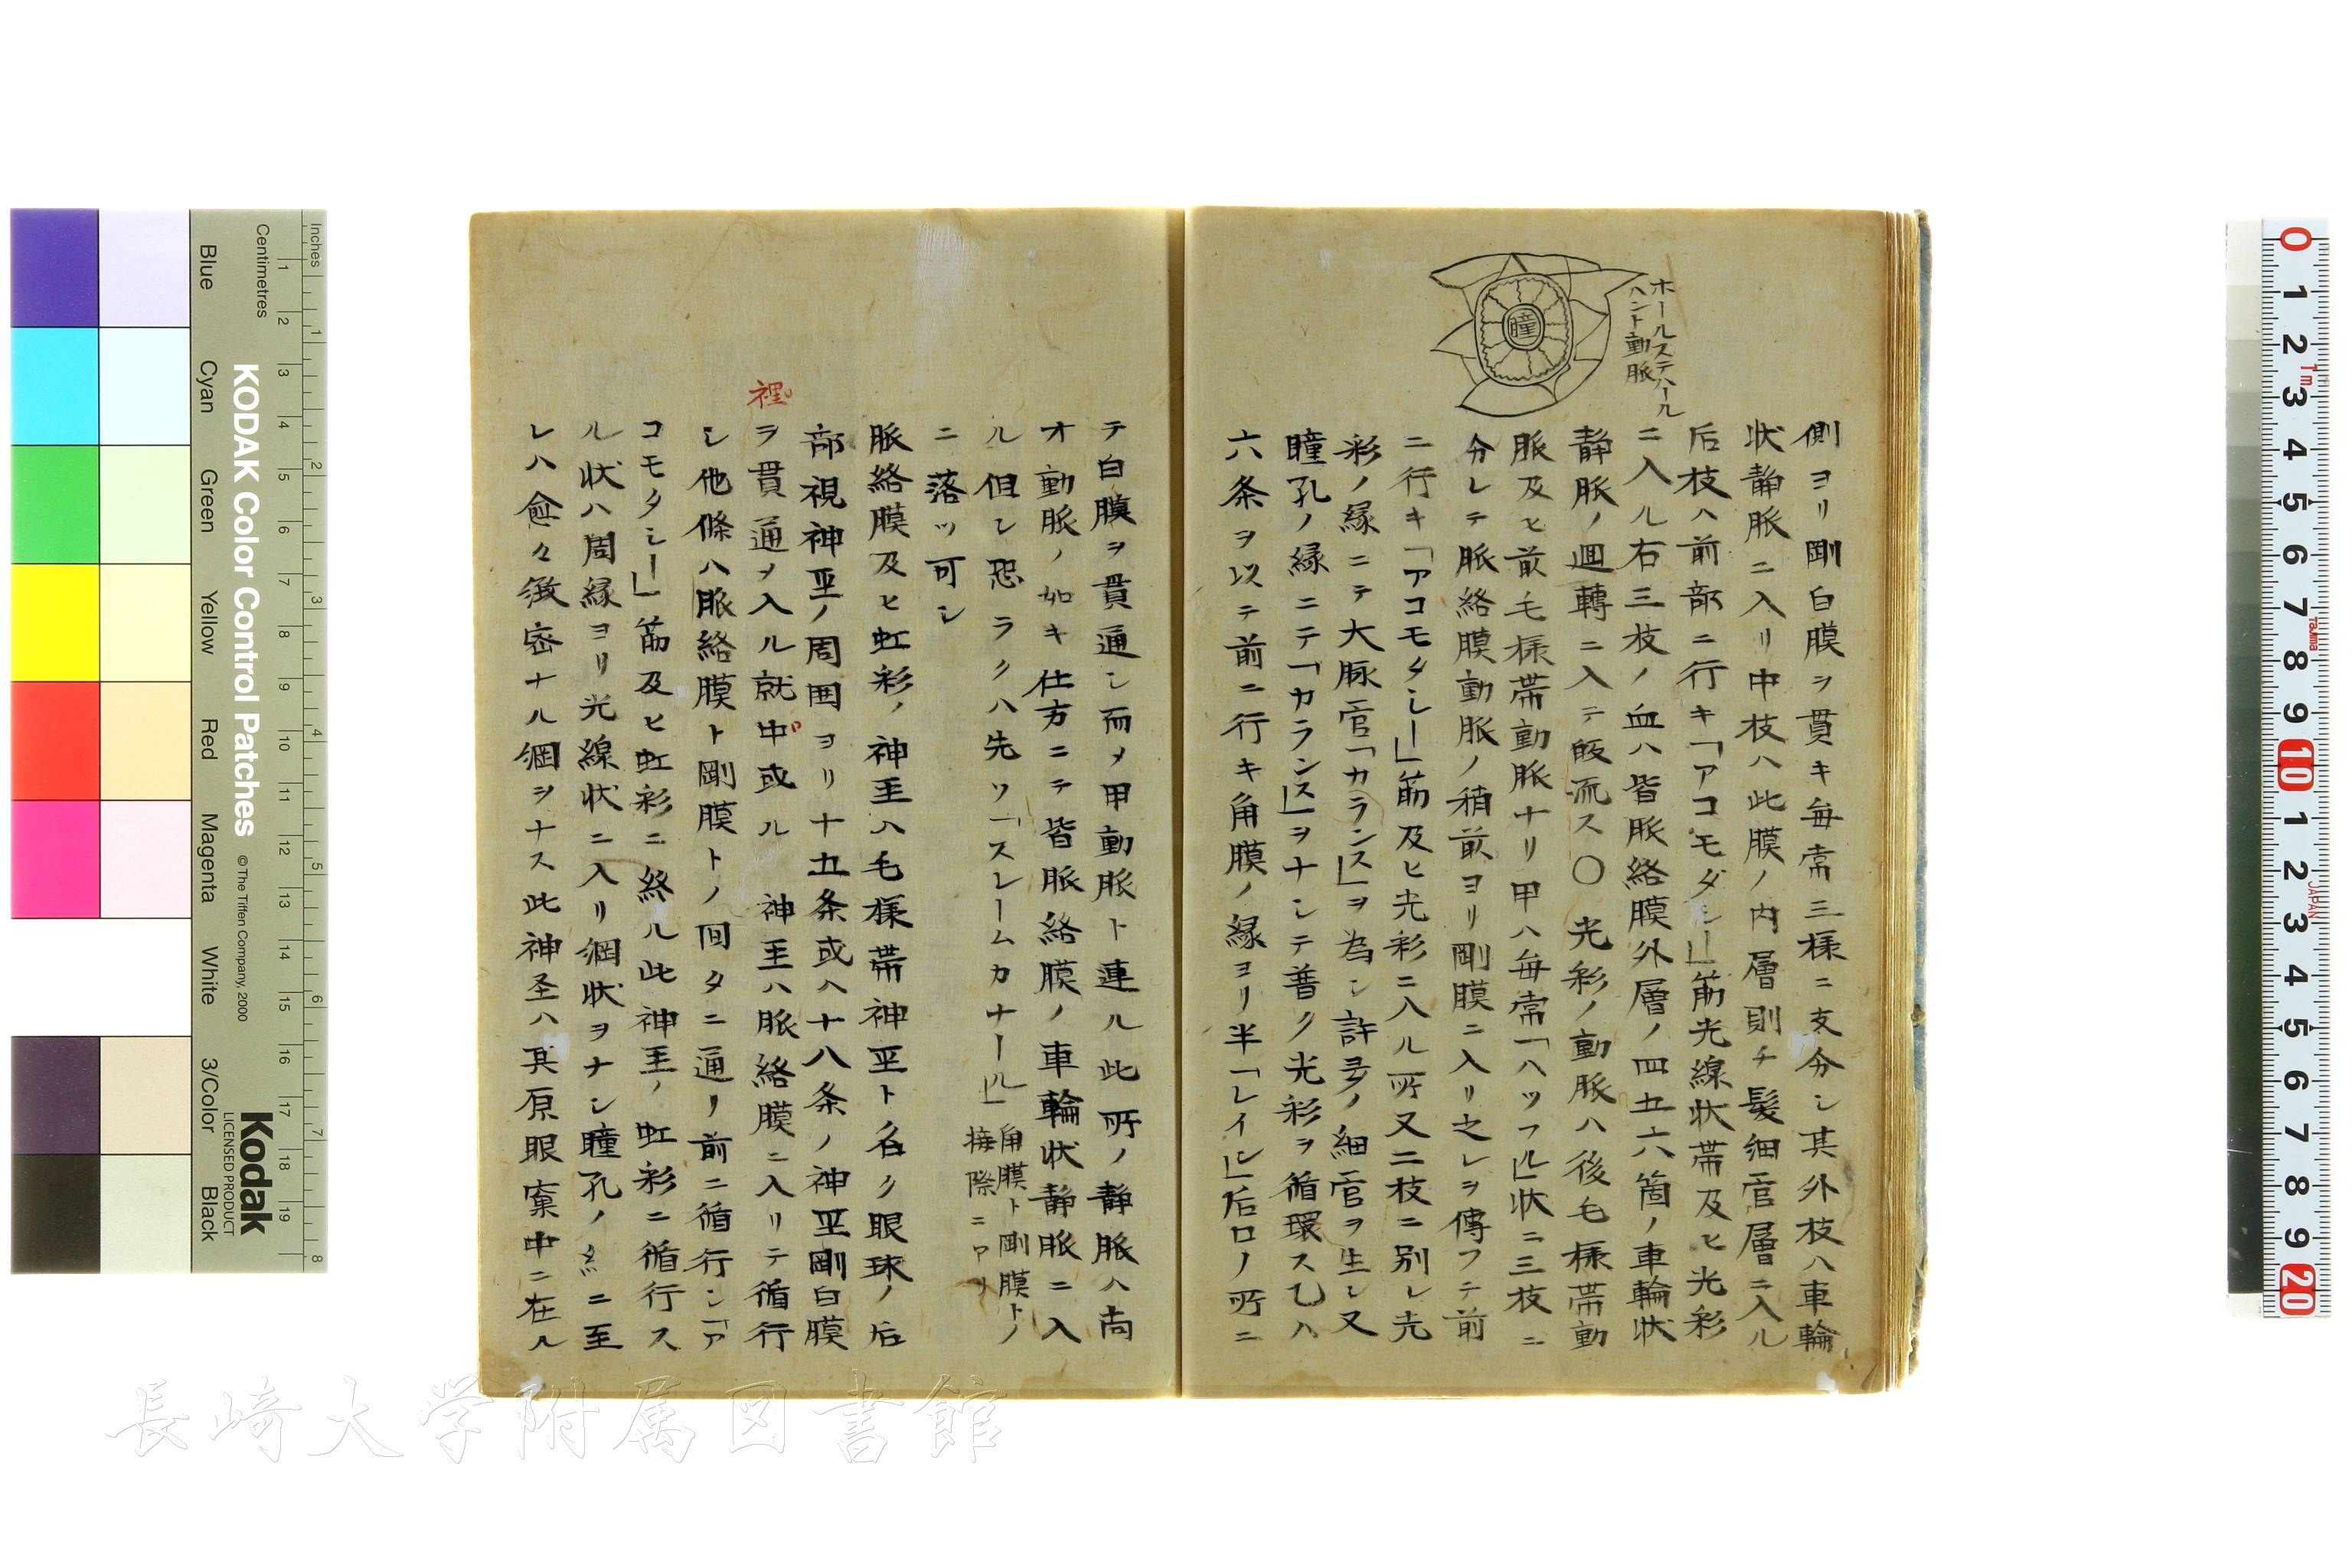 ホールステハール
ハント動脈
瞳
側ヨリ剛白膜ヲ貫キ毎常三様ニ支分シ其外枝ハ車輪
状静脈ニ入リ中枝ハ此膜ノ内層則チ髪細官層ニ入ル
后枝ハ前部ニ行キ「アコモダシー」筋光線状帯及ヒ光彩
ニ入ル右三枝ノ血ハ皆脈絡膜外層ノ四五六箇ノ車輪状
静脈ノ廻轉ニ入テ皈流ス〇光彩ノ動脈ハ後毛様帯動
脈及ヒ前毛様帯動脈ナリ甲ハ毎常「ハツフル」状ニ三枝ニ
分レテ脈絡膜動脈ノ稍前ヨリ剛膜ニ入リ之レヲ傳フテ前
ニ行キ「アコモダシー」筋及ヒ光彩ニ入ル所又二枝ニ別レ光
彩ノ縁ニテ大脈官「カランス」ヲ為シ許多ノ細官ヲ生シ又
瞳孔ノ縁ニテ「カランス」ヲナシテ普ク光彩ヲ循環ス乙ハ
六条ヲ以テ前ニ行キ角膜ノ縁ヨリ半「レイン」后ロノ所ニ
テ白膜ヲ貫通シ而メ甲動脈ト連ル此所ノ静脈ハ尚
オ動脈ノ如キ仕方ニテ皆脈絡膜ノ車輪状静脈ニ入
ル但シ恐ラクハ先ツ「スレームカナール」角膜ト剛膜トノ
接際ニアリ
ニ落ツ可シ
脈絡膜及ヒ虹彩ノ神圣ハ毛様帯神圣ト名ク眼球ノ后
部視神圣ノ周囲ヨリ十五条或ハ十八条ノ神圣剛白膜
裡
ヲ貫通ヲ入ル就中或ル 神圣ハ脈絡膜ニ入リテ循行
シ他條ハ脈絡膜ト剛膜トノ間タニ通リ前ニ循行シ「ア
コモタシー」筋及ヒ虹彩ニ終ル此神圣ノ虹彩ニ循行ス
ル状ハ周縁ヨリ光線状ニ入リ網状ヲナシ瞳孔ノ縁ニ至
レハ愈々緻密ナル網ヲナス此神圣ハ其原眼窠中ニ在ル
Inches
Centimetres
KODAK Color Control Patches
© The Tiffen Company, 2000
Kodak
LICENSED PRODUCT
Blue
Cyan
Green
Yellow
Red
Magenta
White
3/Color
Black
1 2 3 4 5 6 7 8
1 2 3 4 5 6 7 8 9 10 11 12 13 14 15 16 17 18 19
0 1 2 3 4 5 6 7 8 9 10 1 2 3 4 5 6 7 8 9 20
Tajima
JAPAN
長崎大学附属図書館